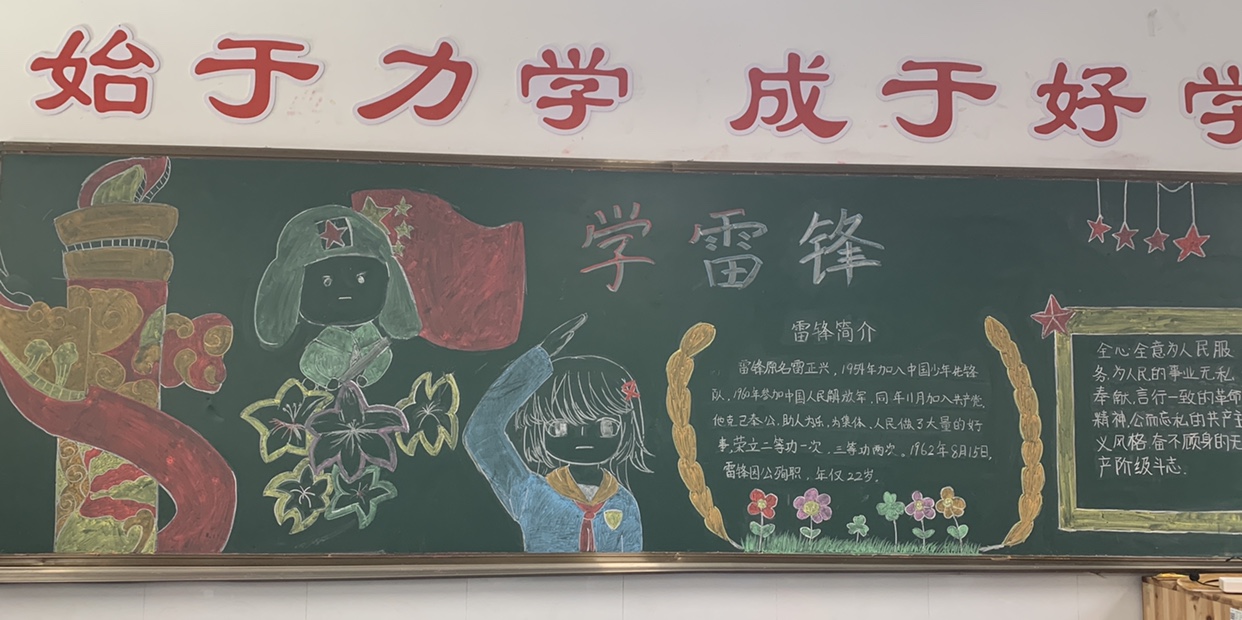 始于力学 成于好学
学雷锋
雷锋简介
雷锋原名雷正兴，1954年加入中国少年先锋
队，1960年参加中国人民解放军，同年11月加入共产党，
他克己奉公，助人为乐，为集体、人民做了大量的好
事，荣立二等功一次，三等功两次。1962年8月15日，
雷锋因公殉职，年仅22岁。
全心全意为人民服
务，为人民的事业无私
奉献，言行一致的革命
精神，公而忘私的共产主
义风格，奋不顾身的无
产阶级斗志.